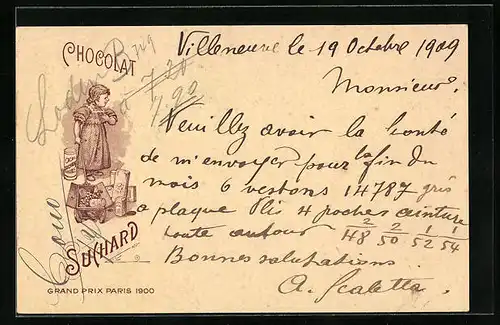 CHOCOLAT
SUCHARD
GRAND PRIX PARIS 1900
Villeneuve le 19 Octobre 1909
Monsieur.
Veuillez avoir la bonté
de m'envoyer pour la fin du
mois 6 vestons 14787 gris
a plaque Plis 4 poches ceinture
toute autour 2/48 2/50 1/52 1/54
Bonnes salutations.
A. Scaletta